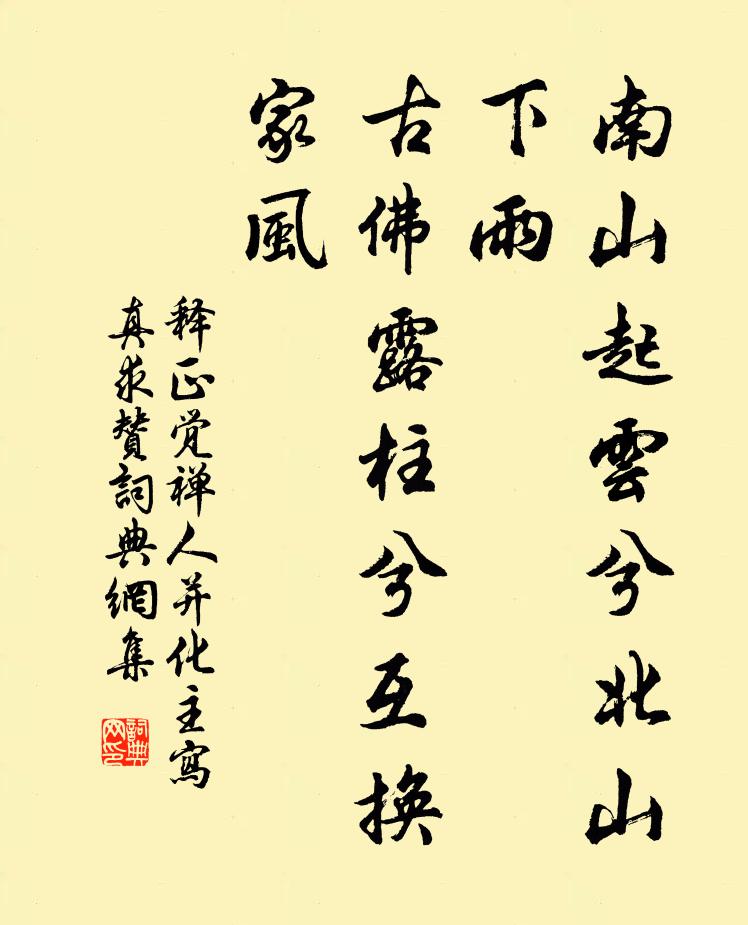 南山起雲兮北山
下雨
古佛露柱兮互換
家風
释正觉禅人并化主寫
真求贊詞典網集
詞典網印